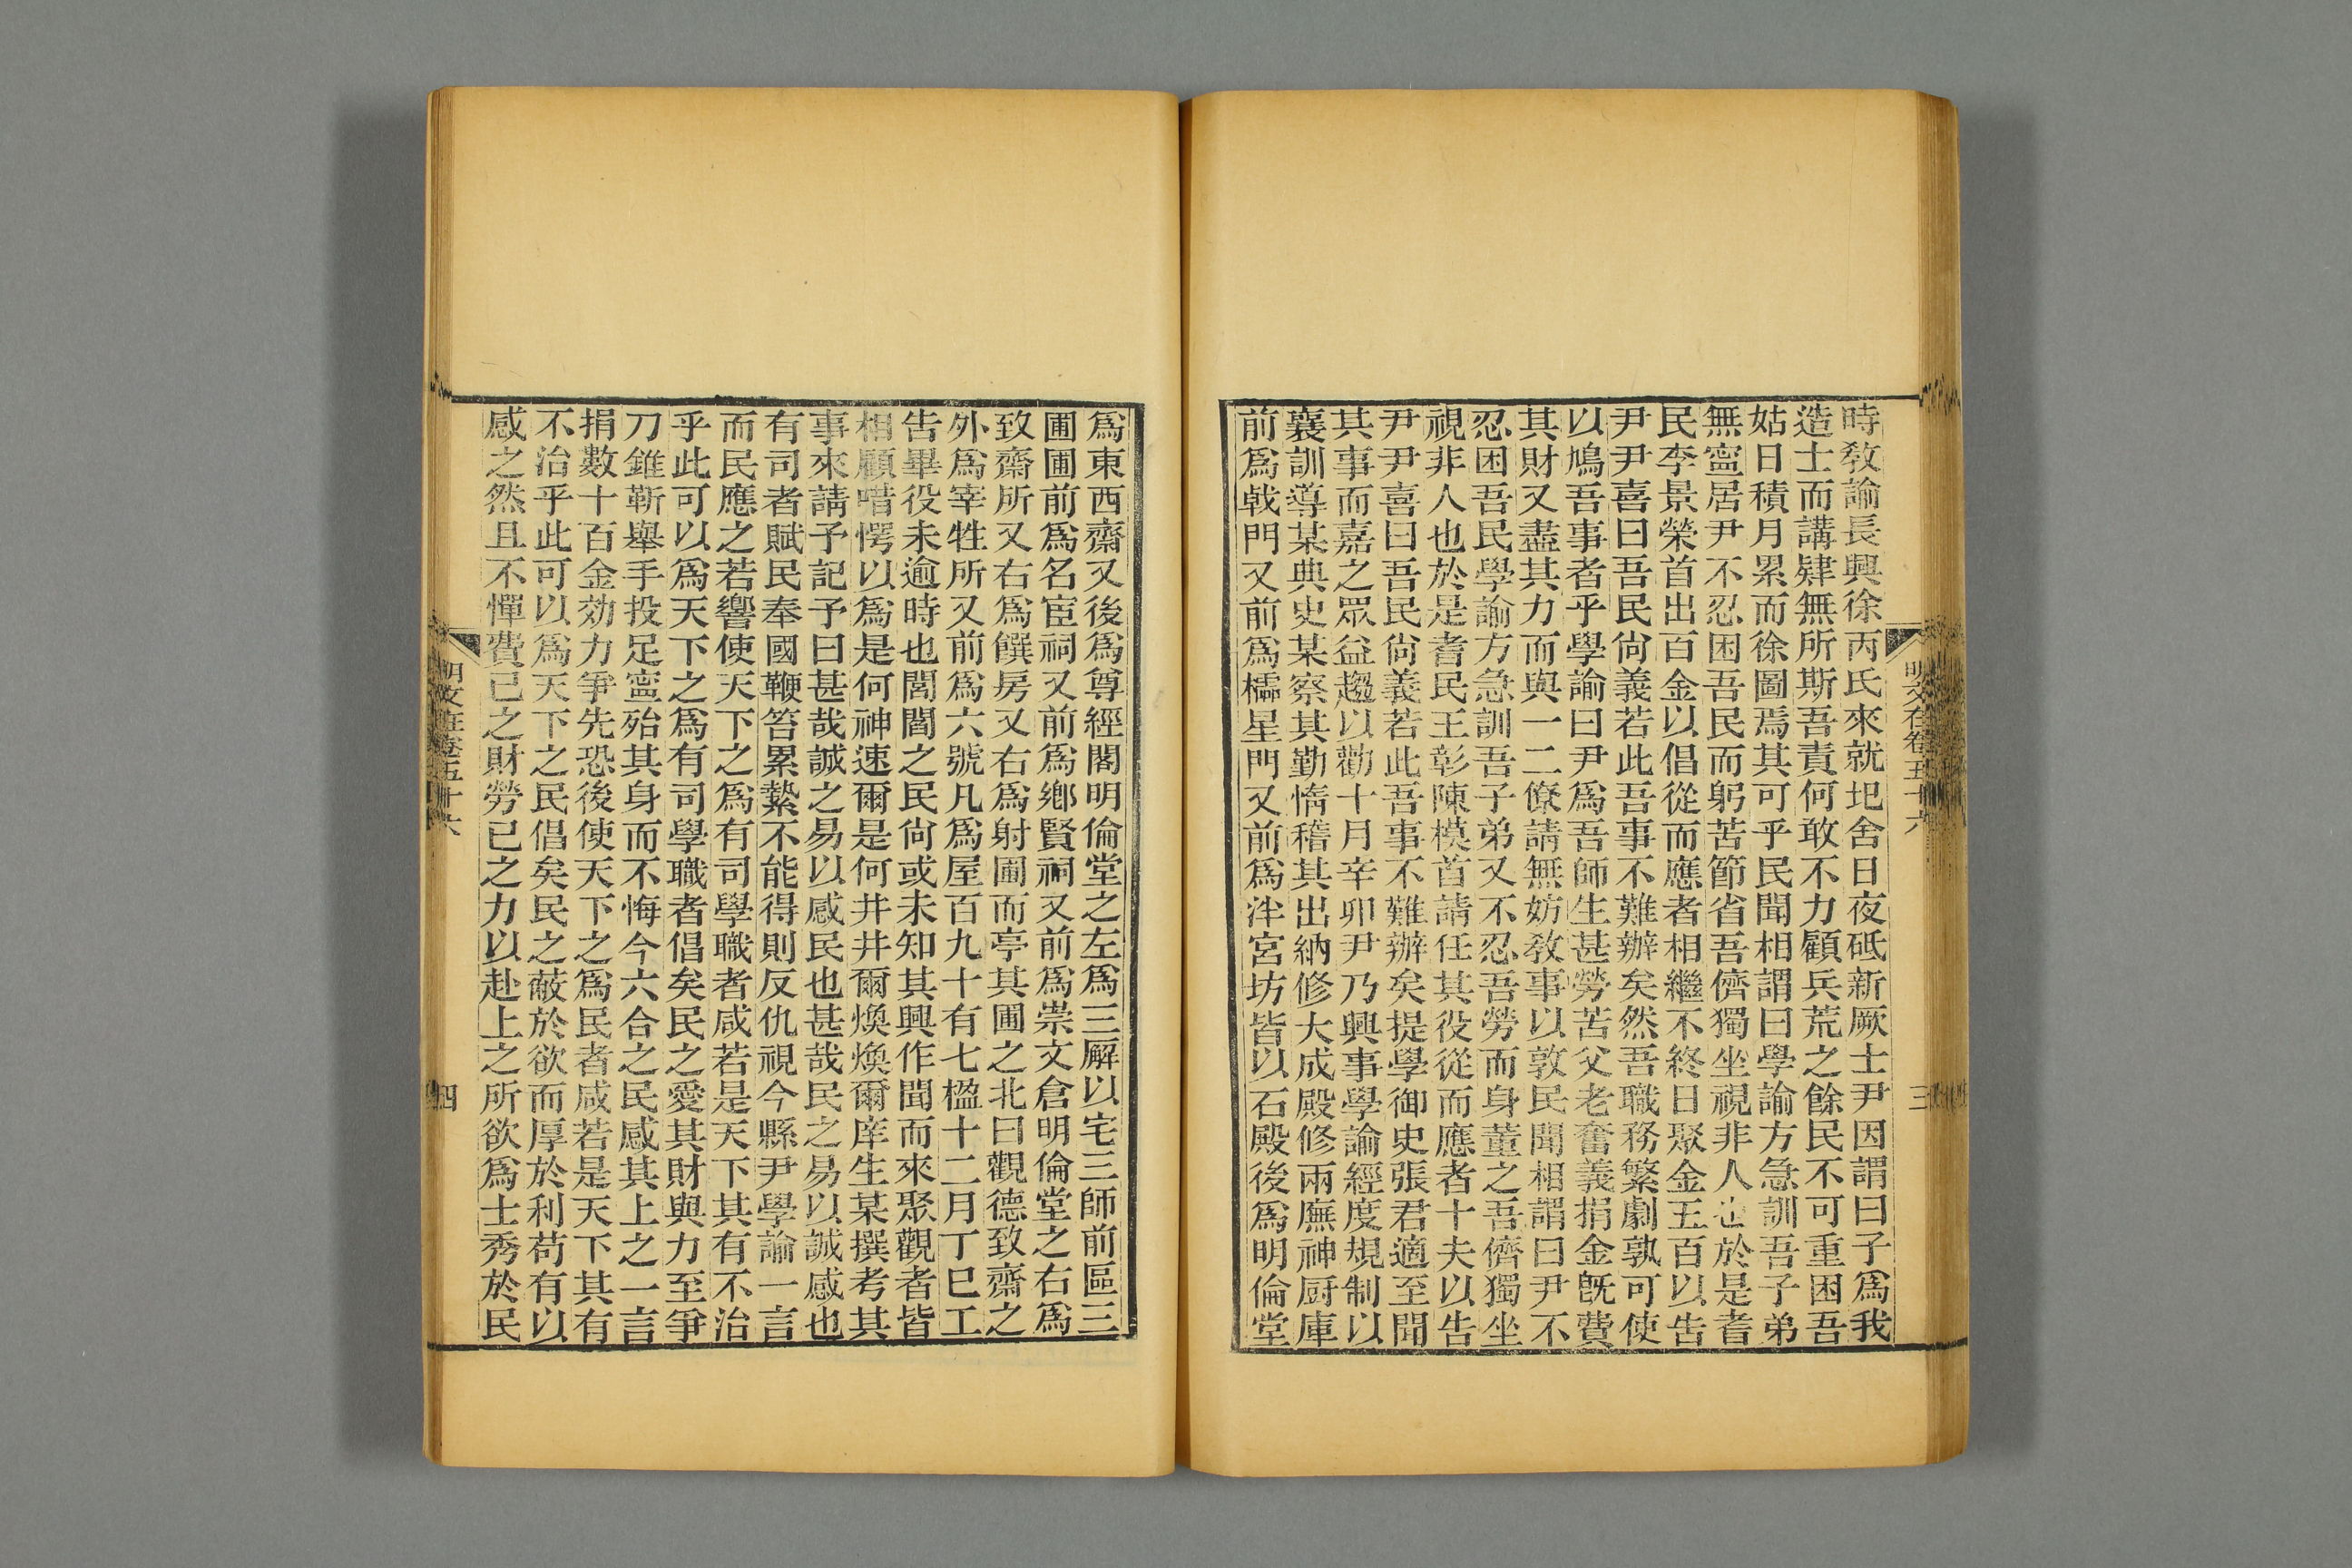 時敎諭長興徐丙氏來就圯舍日夜砥新厥士尹因謂曰子爲我
造士而講肄無所斯吾責何敢不力顧兵荒之餘民不可重困吾
姑日積月累而徐圖焉其可乎民聞相謂曰學諭方急訓吾子弟
無寧居尹不忍困吾民而躬苦節省吾儕獨坐視非人也於是耆
民李景榮首出百金以倡從而應者相繼不終日聚金五百以告
尹尹喜曰吾民尙義若此吾事不難辦矣然吾職務繁劇孰可使
以鳩吾事者乎學諭曰尹爲吾師生甚勞苦父老奮義捐金旣費
其財又盡其力而與一二僚請無妨敎事以敦民聞相謂曰尹不
忍困吾民學諭方急訓吾子弟又不忍吾勞而身董之吾儕獨坐
視非人也於是耆民王彰陳模首請任其役從而應者十夫以告
尹尹喜曰吾民尙義若此吾事不難辦矣提學御史張君適至聞
其事而嘉之眾益趨以勸十月辛卯尹乃興事學諭經度規制以
襄訓導某典史某察其勤惰稽其出納修大成殿修兩廡神厨庫
前爲戟門又前爲櫺星門又前爲泮宮坊皆以石殿後爲明倫堂
明文在卷五十六
三
爲東西齋又後爲尊經閣明倫堂之左爲三廨以宅三師前區三
圃圃前爲名宦祠又前爲鄕賢祠又前爲崇文倉明倫堂之右爲
致齋所又右爲饌房又右爲射圃而亭其圃之北曰觀德致齋之
外爲宰牲所又前爲六號凡爲屋百九十有七楹十二月丁巳工
告畢役未逾時也閭閻之民尙或未知其興作聞而來聚觀者皆
相顧喈愕以爲是何神速爾是何井井爾煥煥爾庠生某撰考其
事來請予記予曰甚哉誠之易以感民也甚哉民之易以誠感也
有司者賦民奉國鞭笞累縶不能得則反仇視今縣尹學諭一言
而民應之若響使天下之爲有司學職者咸若是天下其有不治
乎此可以爲天下之爲有司學職者倡矣民之愛其財與力至爭
刀錐靳舉手投足寧殆其身而不悔今六合之民感其上之一言
捐數十百金効力爭先恐後使天下之爲民者咸若是天下其有
不治乎此可以爲天下之民倡矣民之蔽於欲而厚於利苟有以
感之然且不憚費已之財勞已之力以赴上之所欲爲士秀於民
明文在卷五十六
四